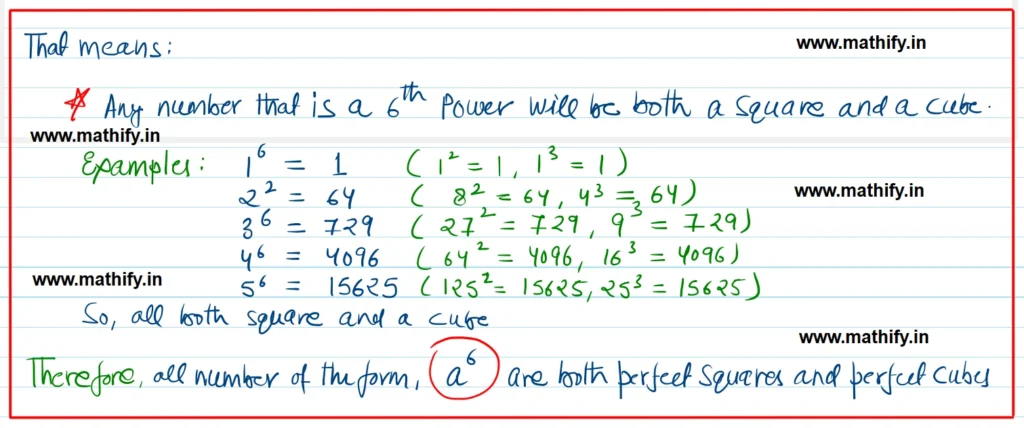 That means:
www.mathify.in
* Any number that is a 6th Power will be both a square and a cube.
www.mathify.in
Examples: 1⁶ = 1 (1² = 1, 1³ = 1)
2² = 64 (8² = 64, 4³ = 64)
www.mathify.in
3⁶ = 729 (27² = 729, 9³ = 729)
4⁶ = 4096 (64² = 4096, 16³ = 4096)
www.mathify.in
5⁶ = 15625 (125² = 15625, 25³ = 15625)
So, all both square and a cube
www.mathify.in
Therefore, all number of the form, a⁶ are both perfect squares and perfect cubes